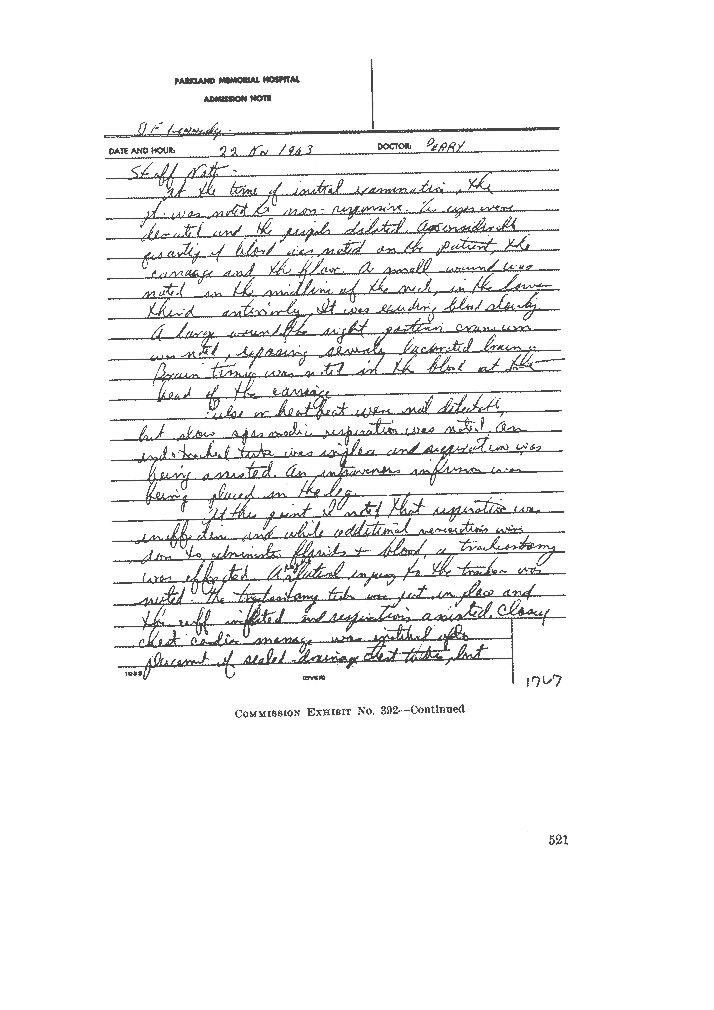 PARKLAND MEMORIAL HOSPITAL
ADMISSION NOTE
J F Kennedy
DATE AND HOUR 22 Nov 1963 DOCTOR: PERRY
Staff Note -
At the time of initial examination, the
pt. was noted to non-responsive. The eyes were
deviated and the pupils dilated. A considerable
quantity of blood was noted on the patient, the
carriage and the floor. A small wound was
noted in the midline of the neck, in the lower
third anteriorly. It was exuding blood slowly
A large wound the right posterior cranium
was noted, exposing severely lacerated brain.
Brain tissue was noted in the blood at the
head of the carriage
Pulse or heartbeat were not detected,
but slow spasmodic respiration was noted. An
endotracheal tube was in place and respiration was
being assisted. An intravenous infusion was
being placed in the leg.
At this point I noted that respiration was
ineffective and while additional venisections were
done to administer fluids + blood, a tracheostomy
was effected. A right lateral injury to the trachea was
noted. The tracheostomy tube was put in place and
the cuff inflated and respiration assisted. Closed
chest cardiac massage was instituted after
placement of sealed drainage chest tubes, but
(OVER)
1767
COMMISSION EXHIBIT NO. 392—Continued
521